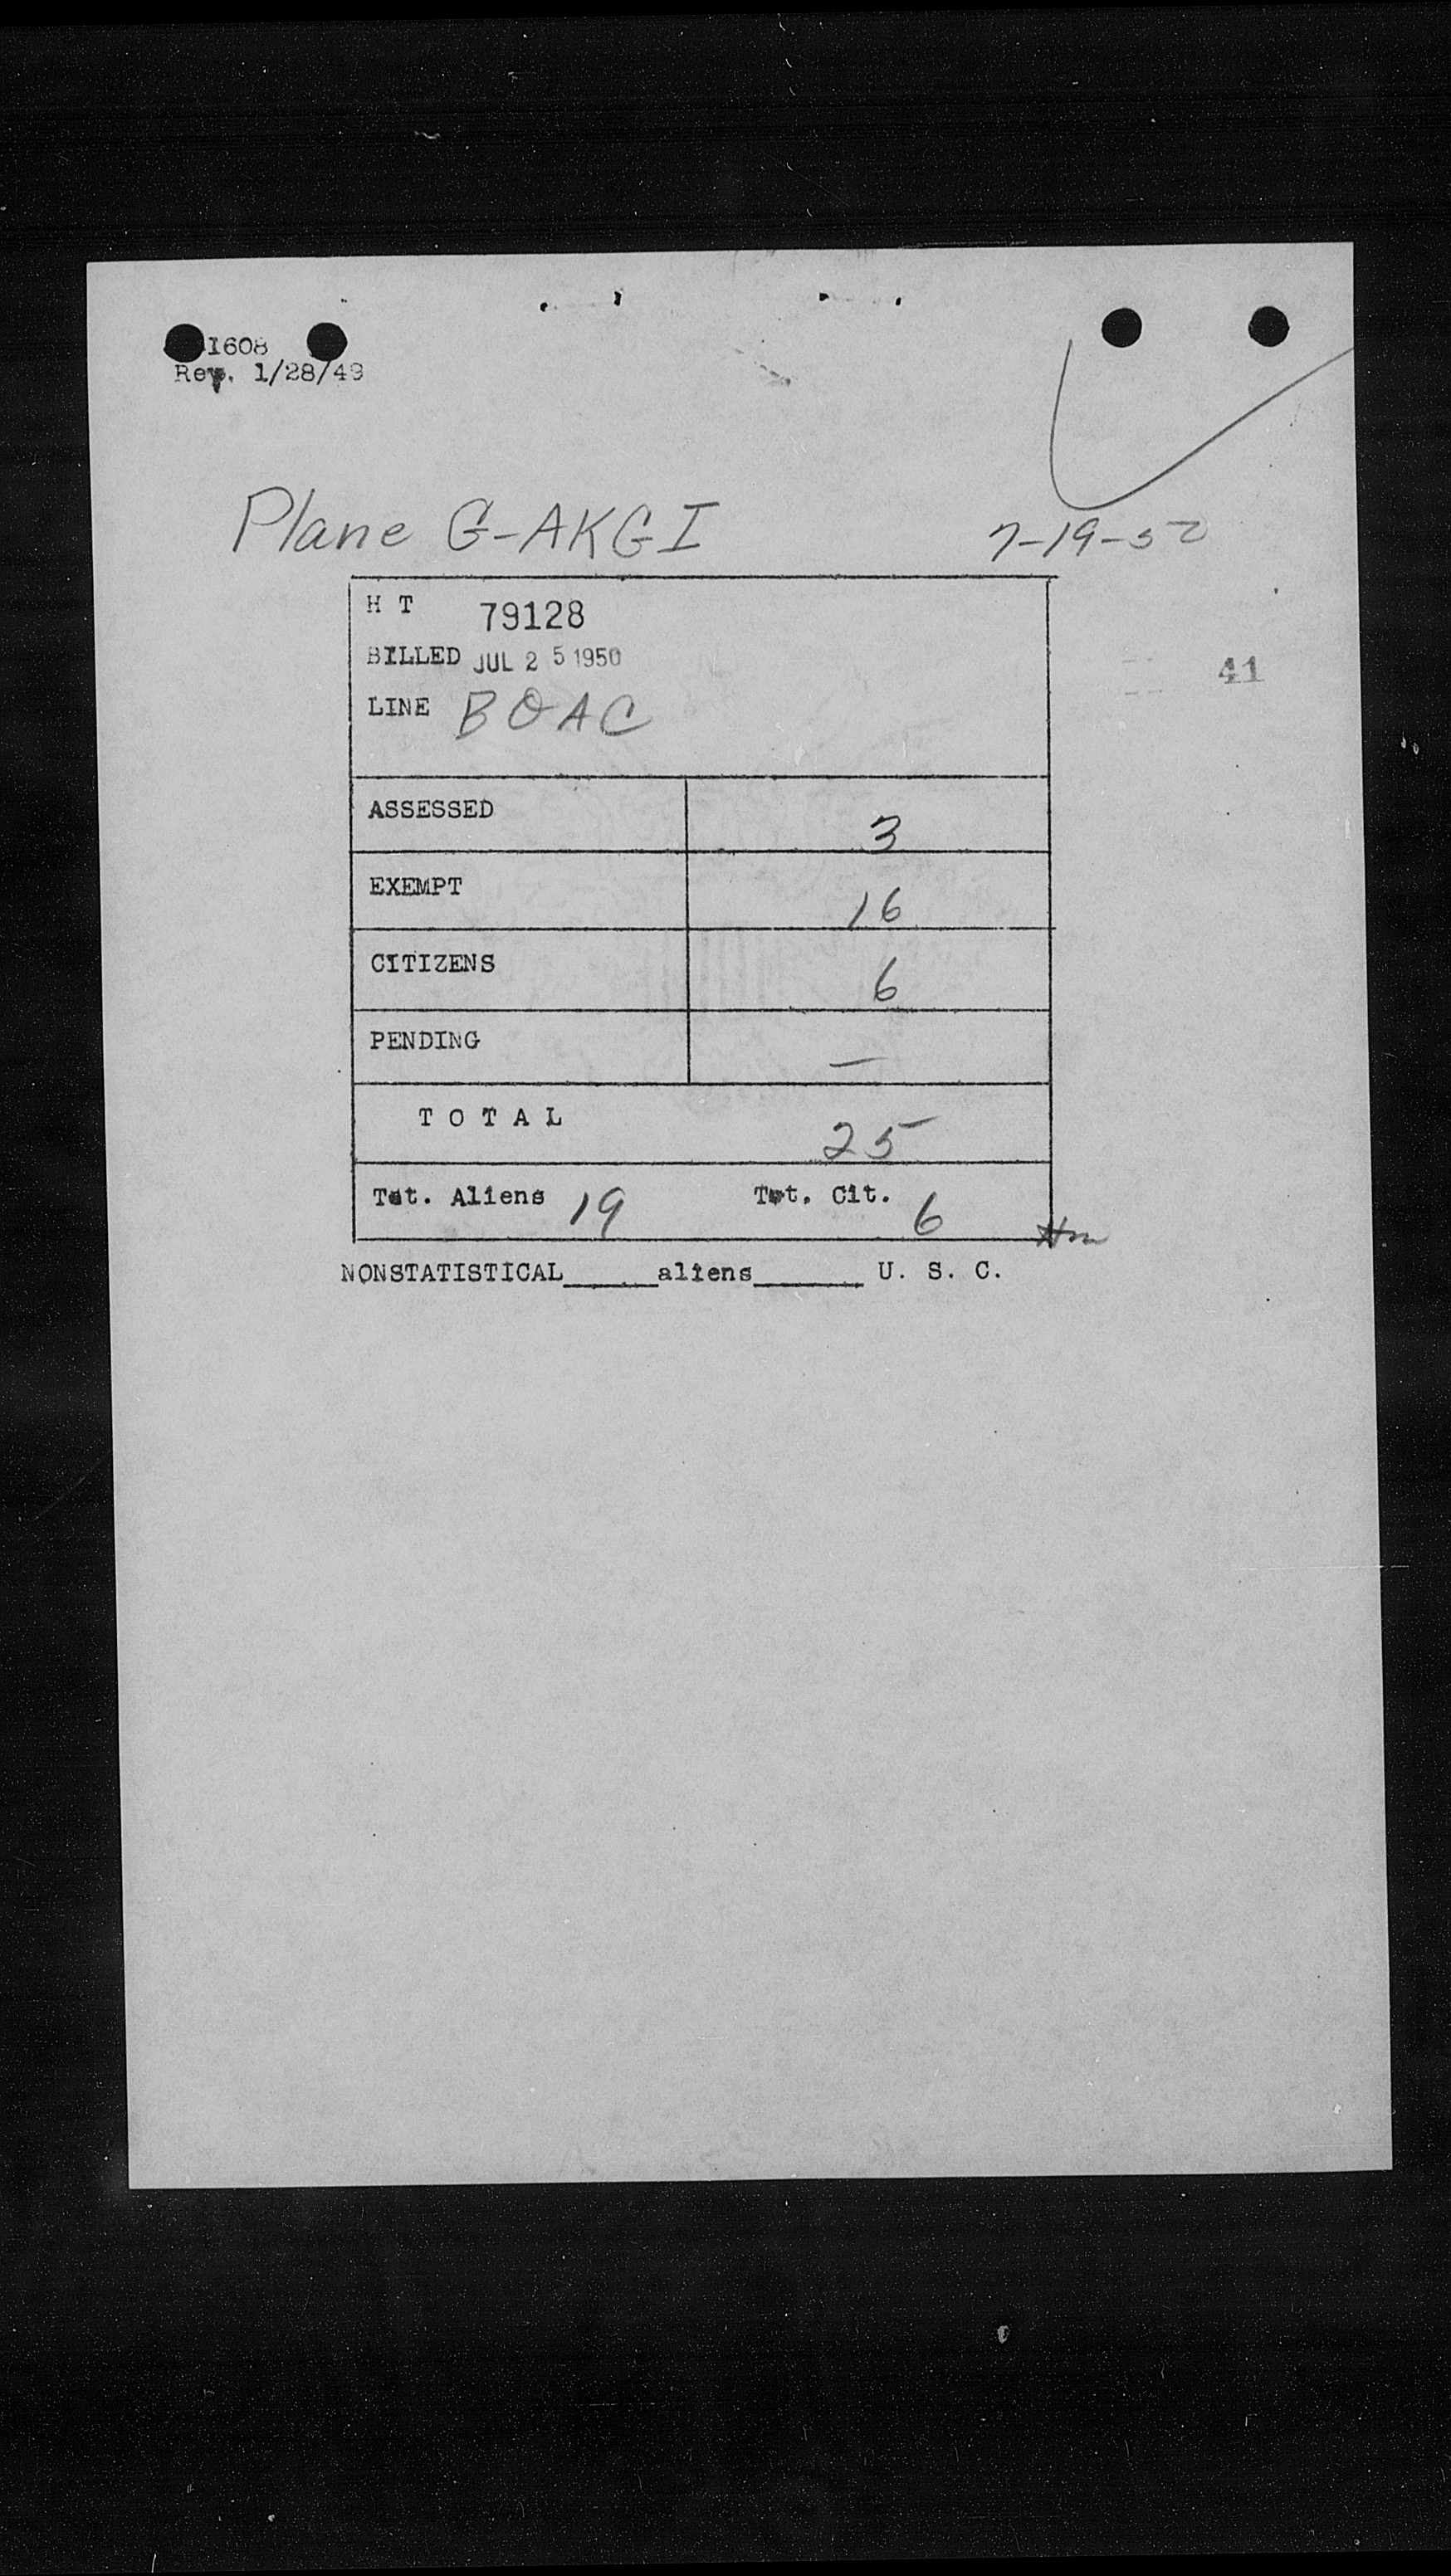 1608
Rev. 1/28/49
Plane G-AKGI 7-19-50
H T 79128
BILLED JUL 25 1950
41
LINE BOAC
ASSESSED 3
EXEMPT 16
CITIZENS 6
PENDING —
T O T A L 25
Tot. Aliens 19 Tot. Cit. 6
NONSTATISTICAL_____aliens______ U. S. C.